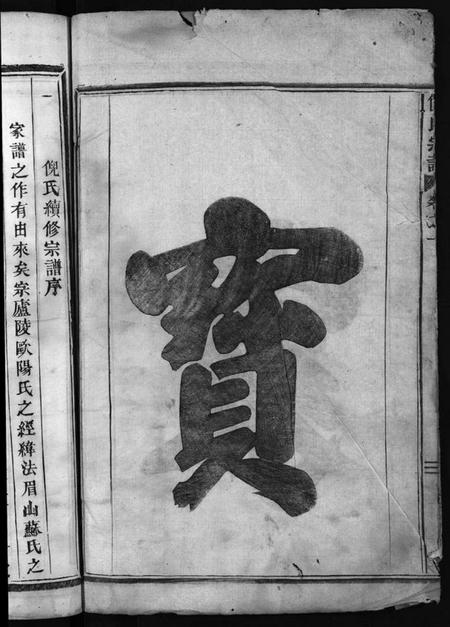 倪氏宗譜
卷之一
寳
倪氏續修宗譜序
家譜之作有由來矣宗廬陵歐陽氏之經緯法眉山蘇氏之